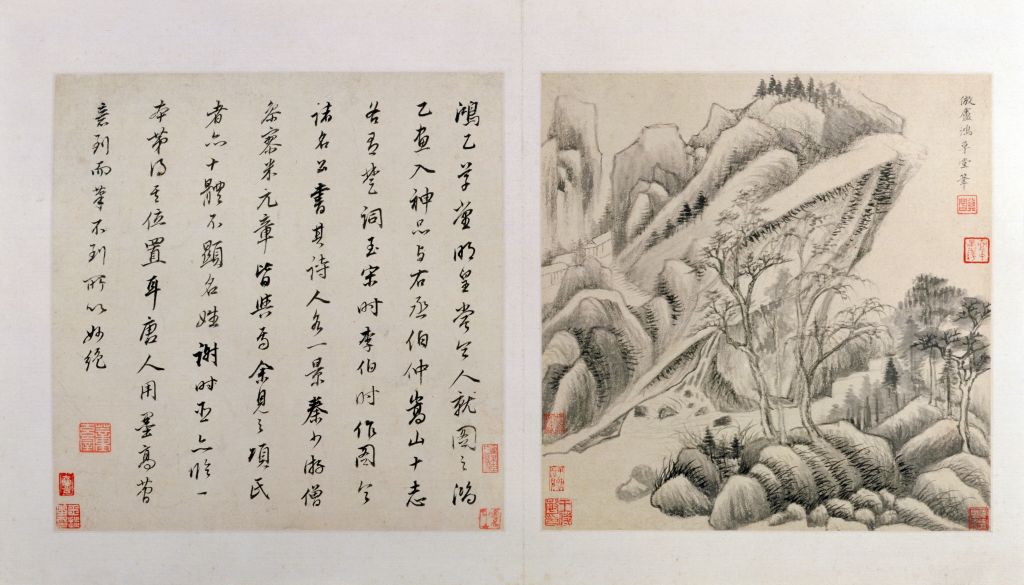 鴻乙草堂明皇嘗令人就圖之鴻
乙畫入神品与右丞伯仲嵩山十志
各有楚詞至宋时李伯时作圖令
諸名公書其诗人各一景秦少游僧
叅寥米元章皆與焉余見之項氏
者亦十體不顯名姓謝时臣亦临一
本第得其位置耳唐人用墨高
意到而筆不到所以妙絶
倣盧鴻草堂筆